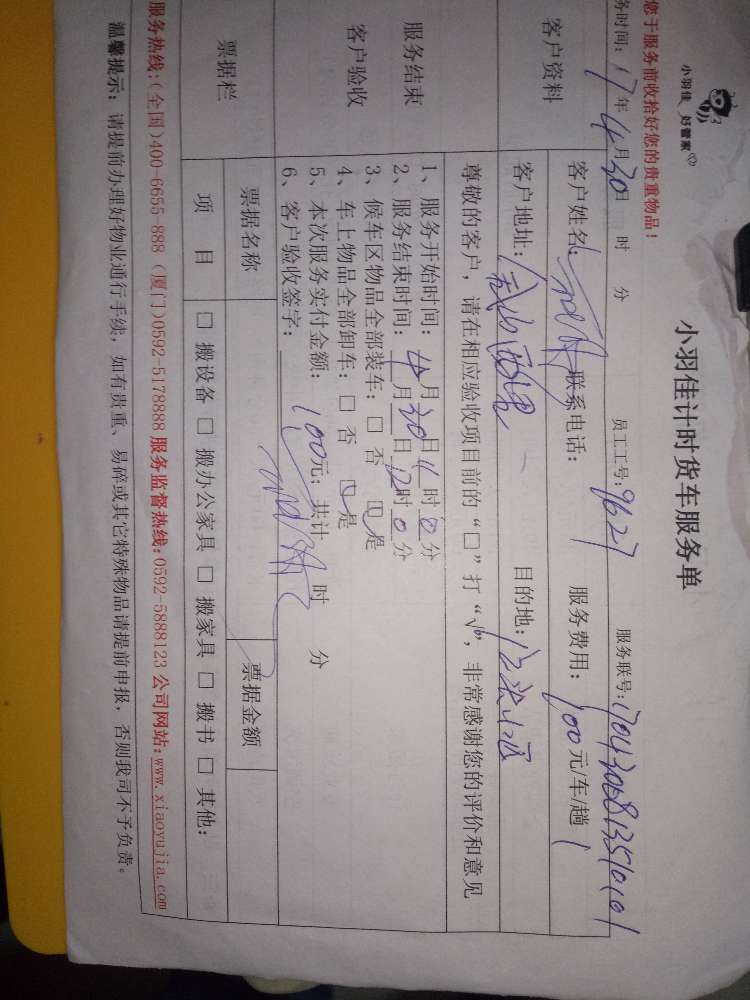 小羽佳 好管家
小羽佳计时货车服务单
您于服务前收拾好您的贵重物品!
务时间: 17年4月30日 时 分 员工工号: 9627 服务联号:
客户资料
客户姓名: 联系电话: 服务费用: 100元/车/趟
客户地址: 目的地:
尊敬的客户,请在相应验收项目前的“□”打“√”,非常感谢您的评价和意见
服务结束
客户验收
1、服务开始时间: 4月30日11时0分
2、服务结束时间: 4月30日12时0分
3、候车区物品全部装车: □ 否 □ 是
4、车上物品全部卸车: □ 否 □ 是
5、本次服务实付金额: 100元; 共计 时 分
6、客户验收签字:
票据栏
票据名称 票据金额
项 目 □ 搬设备 □ 搬办公家具 □ 搬家具 □ 搬书 □ 其他:
服务热线:(全国)400-6655-888 (厦门)0592-5178888 服务监督热线:0592-5888123 公司网站:www.xiaoyujia.com
温馨提示: 请提前办理好物业通行手续, 如有贵重、易碎或其它特殊物品请提前申报, 否则我司不予负责。